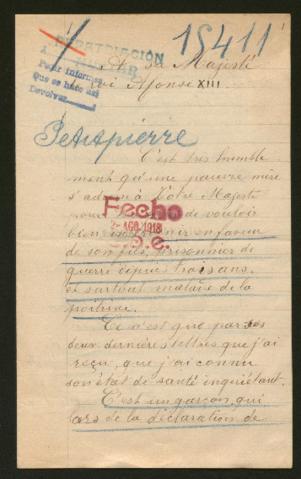 15411
REPATRIACION
A Sa Majesté
Roi Alfonse XIII
Para informes
Que se hace así
Devolver
Petitpierre
C'est très humble
ment qu'une pauvre mère
s'adresse à Votre Majesté
pour de vouloir
bien intervenir en faveur
de son fils, prisonnier de
guerre depuis trois ans,
et surtout malade de la
poitrine.
Fecho
AGO. 1918
Ce n'est que par ses
deux dernières lettres que j'ai
reçu, que j'ai connu
son état de santé inquiétant.
C'est un garçon qui
lors de la déclaration de